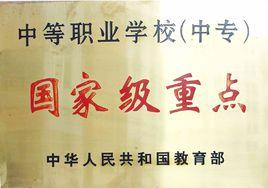 中等职业学校(中专)
国家级重点
中华人民共和国教育部